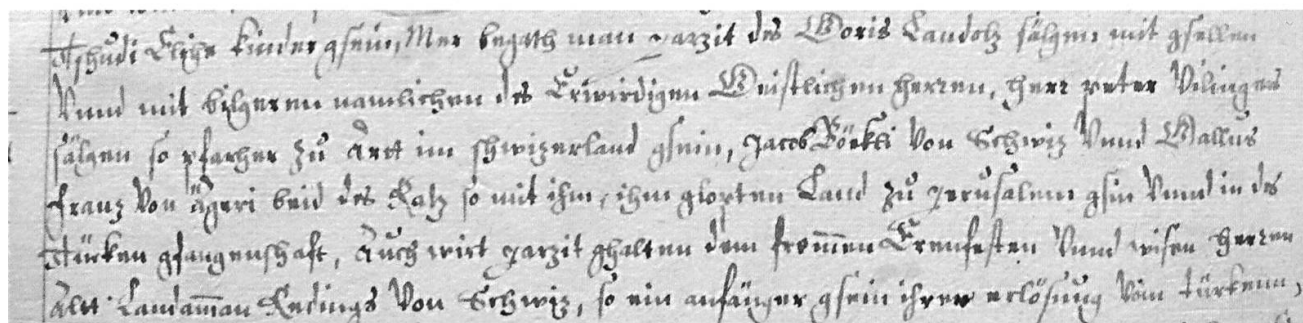 Tshudi Elihe kinder gsein, Mer begath man Jarzit des Goris Landolz sälgen mit gsellen
Vnnd mit bilgeren namlichen des Erwirdigen Geistlichen herren, herr peter Vilinger
sälgen so pfarher zu Artt im shwizerland gsein, Jacob Börkli Von Schwiz Vnnd Gallus
Franz Von Ägeri beid des Ratz so mit ihm, ihm globten Land zu Jerusalem gsin Vnnd in des
Türken gfangenshaft, Auch wirt Jarzit ghalten dem frommen Erenfesten Vnnd wisen herren
Altt Landamman Redings Von Schwiz, so ein anfänger gsein ihrer erlösung Vom türkenn,